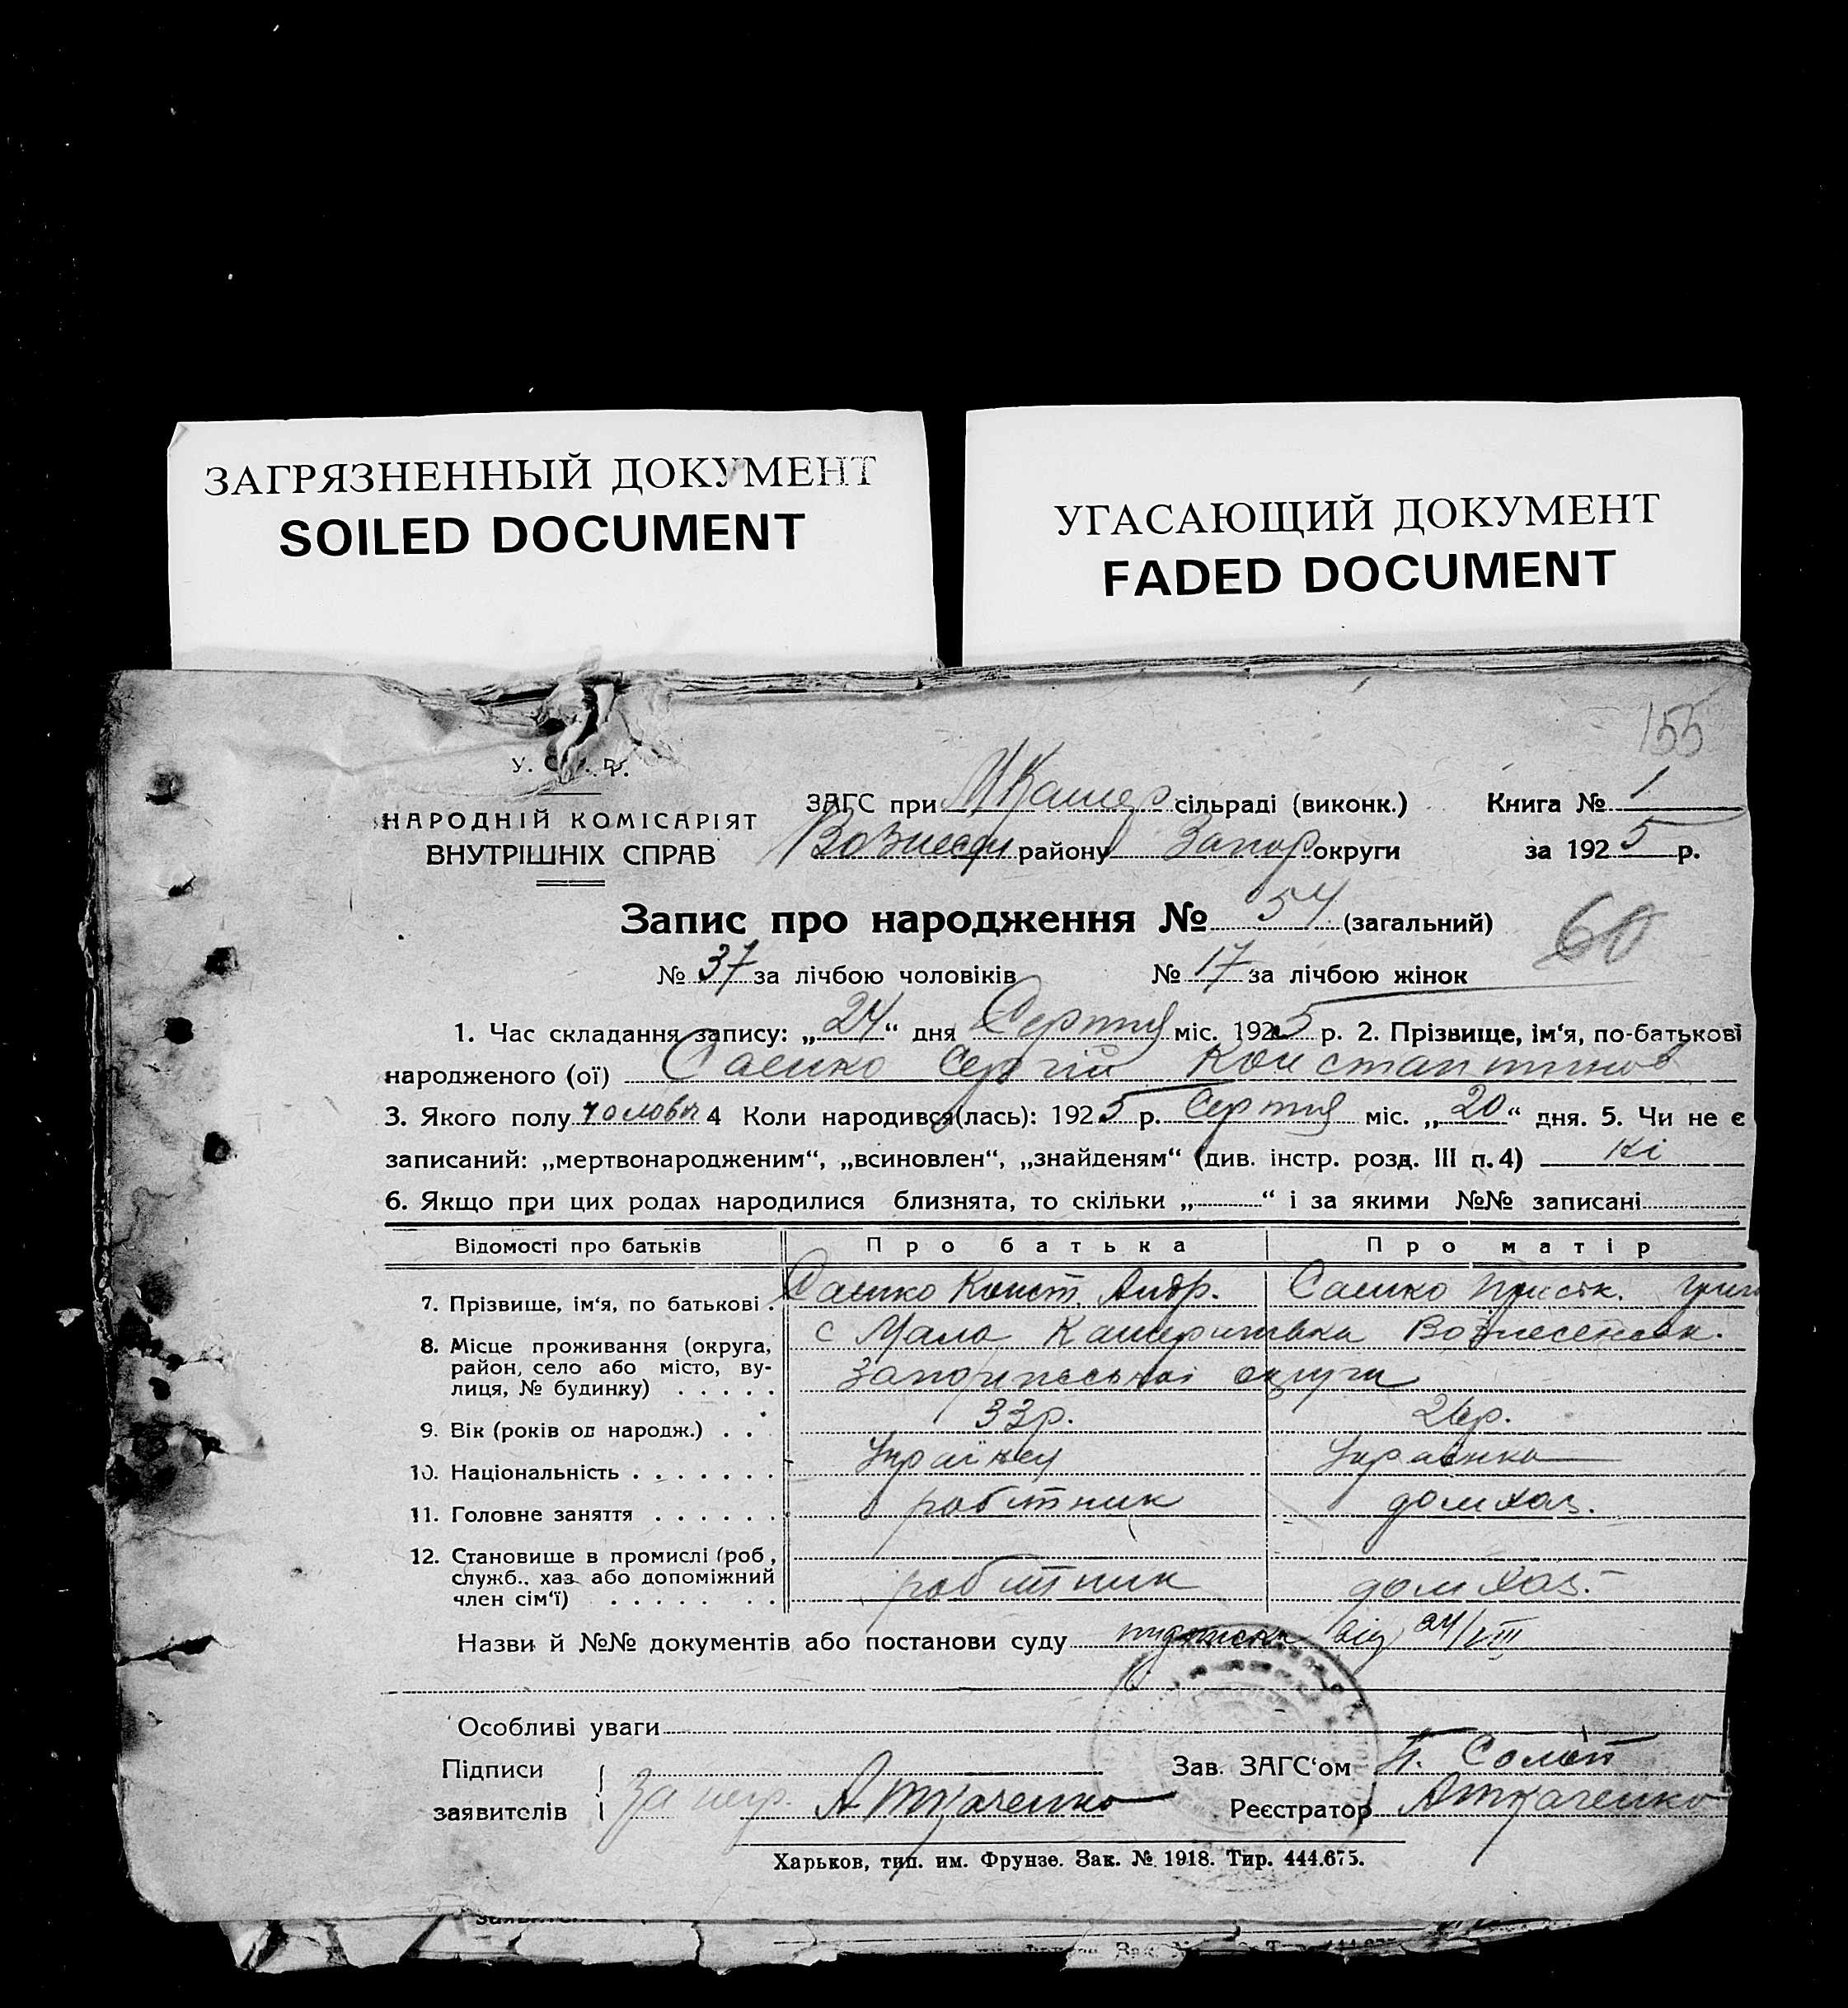 ЗАГРЯЗНЕННЫЙ ДОКУМЕНТ
SOILED DOCUMENT
УГАСАЮЩИЙ ДОКУМЕНТ
FADED DOCUMENT
155
У. С. Р. Р.
НАРОДНІЙ КОМІСАРІЯТ
ВНУТРІШНІХ СПРАВ
ЗАГС при МКашер сільраді (виконк.) Книга № 1
району Запор округи за 1925 р.
Запис про народження № 54 (загальний)
60
№ 37 за лічбою чоловіків № 17 за лічбою жінок
1. Час складання запису: „24“ дня Серпня міс. 1925 р. 2. Прізвище, ім‘я, по-батькові
народженого (ої) Саенко Сергій Константинов
3. Якого полу 4 Коли народився(лась): 1925 р. Серпня міс. „20“ дня. 5. Чи не є
записаний: „мертвонародженим“, „всиновлен“, „знайденям“ (див. інстр. розд. III п. 4) ні
6. Якщо при цих родах народилися близнята, то скільки „ “ і за якими №№ записані
Відомості про батьків Про батька Про матір
7. Прізвище, ім‘я, по батькові . Саенко Конст. Андр. Саенко
8. Місце проживання (округа, район, село або місто, вулиця, № будинку) . . . . .
с Мала Катеринівка Вознесенськ.
округи
9. Вік (років од народж.) . . . 33р. 26р.
10. Національність . . . . . . . Українец Українка
11. Головне заняття . . . . . . робітник дом хаз.
12. Становище в промислі (роб., служб., хаз. або допоміжний член сім‘ї) . . . . . . . .
робітник дом хаз.
Назви й №№ документів або постанови суду від 24/VIII
Особливі уваги
Підписи Зав. ЗАГС‘ом
заявителів А Ткаченко Реєстратор А Ткаченко
Харьков, тип. им. Фрунзе. Зак. № 1918. Тир. 444.675.